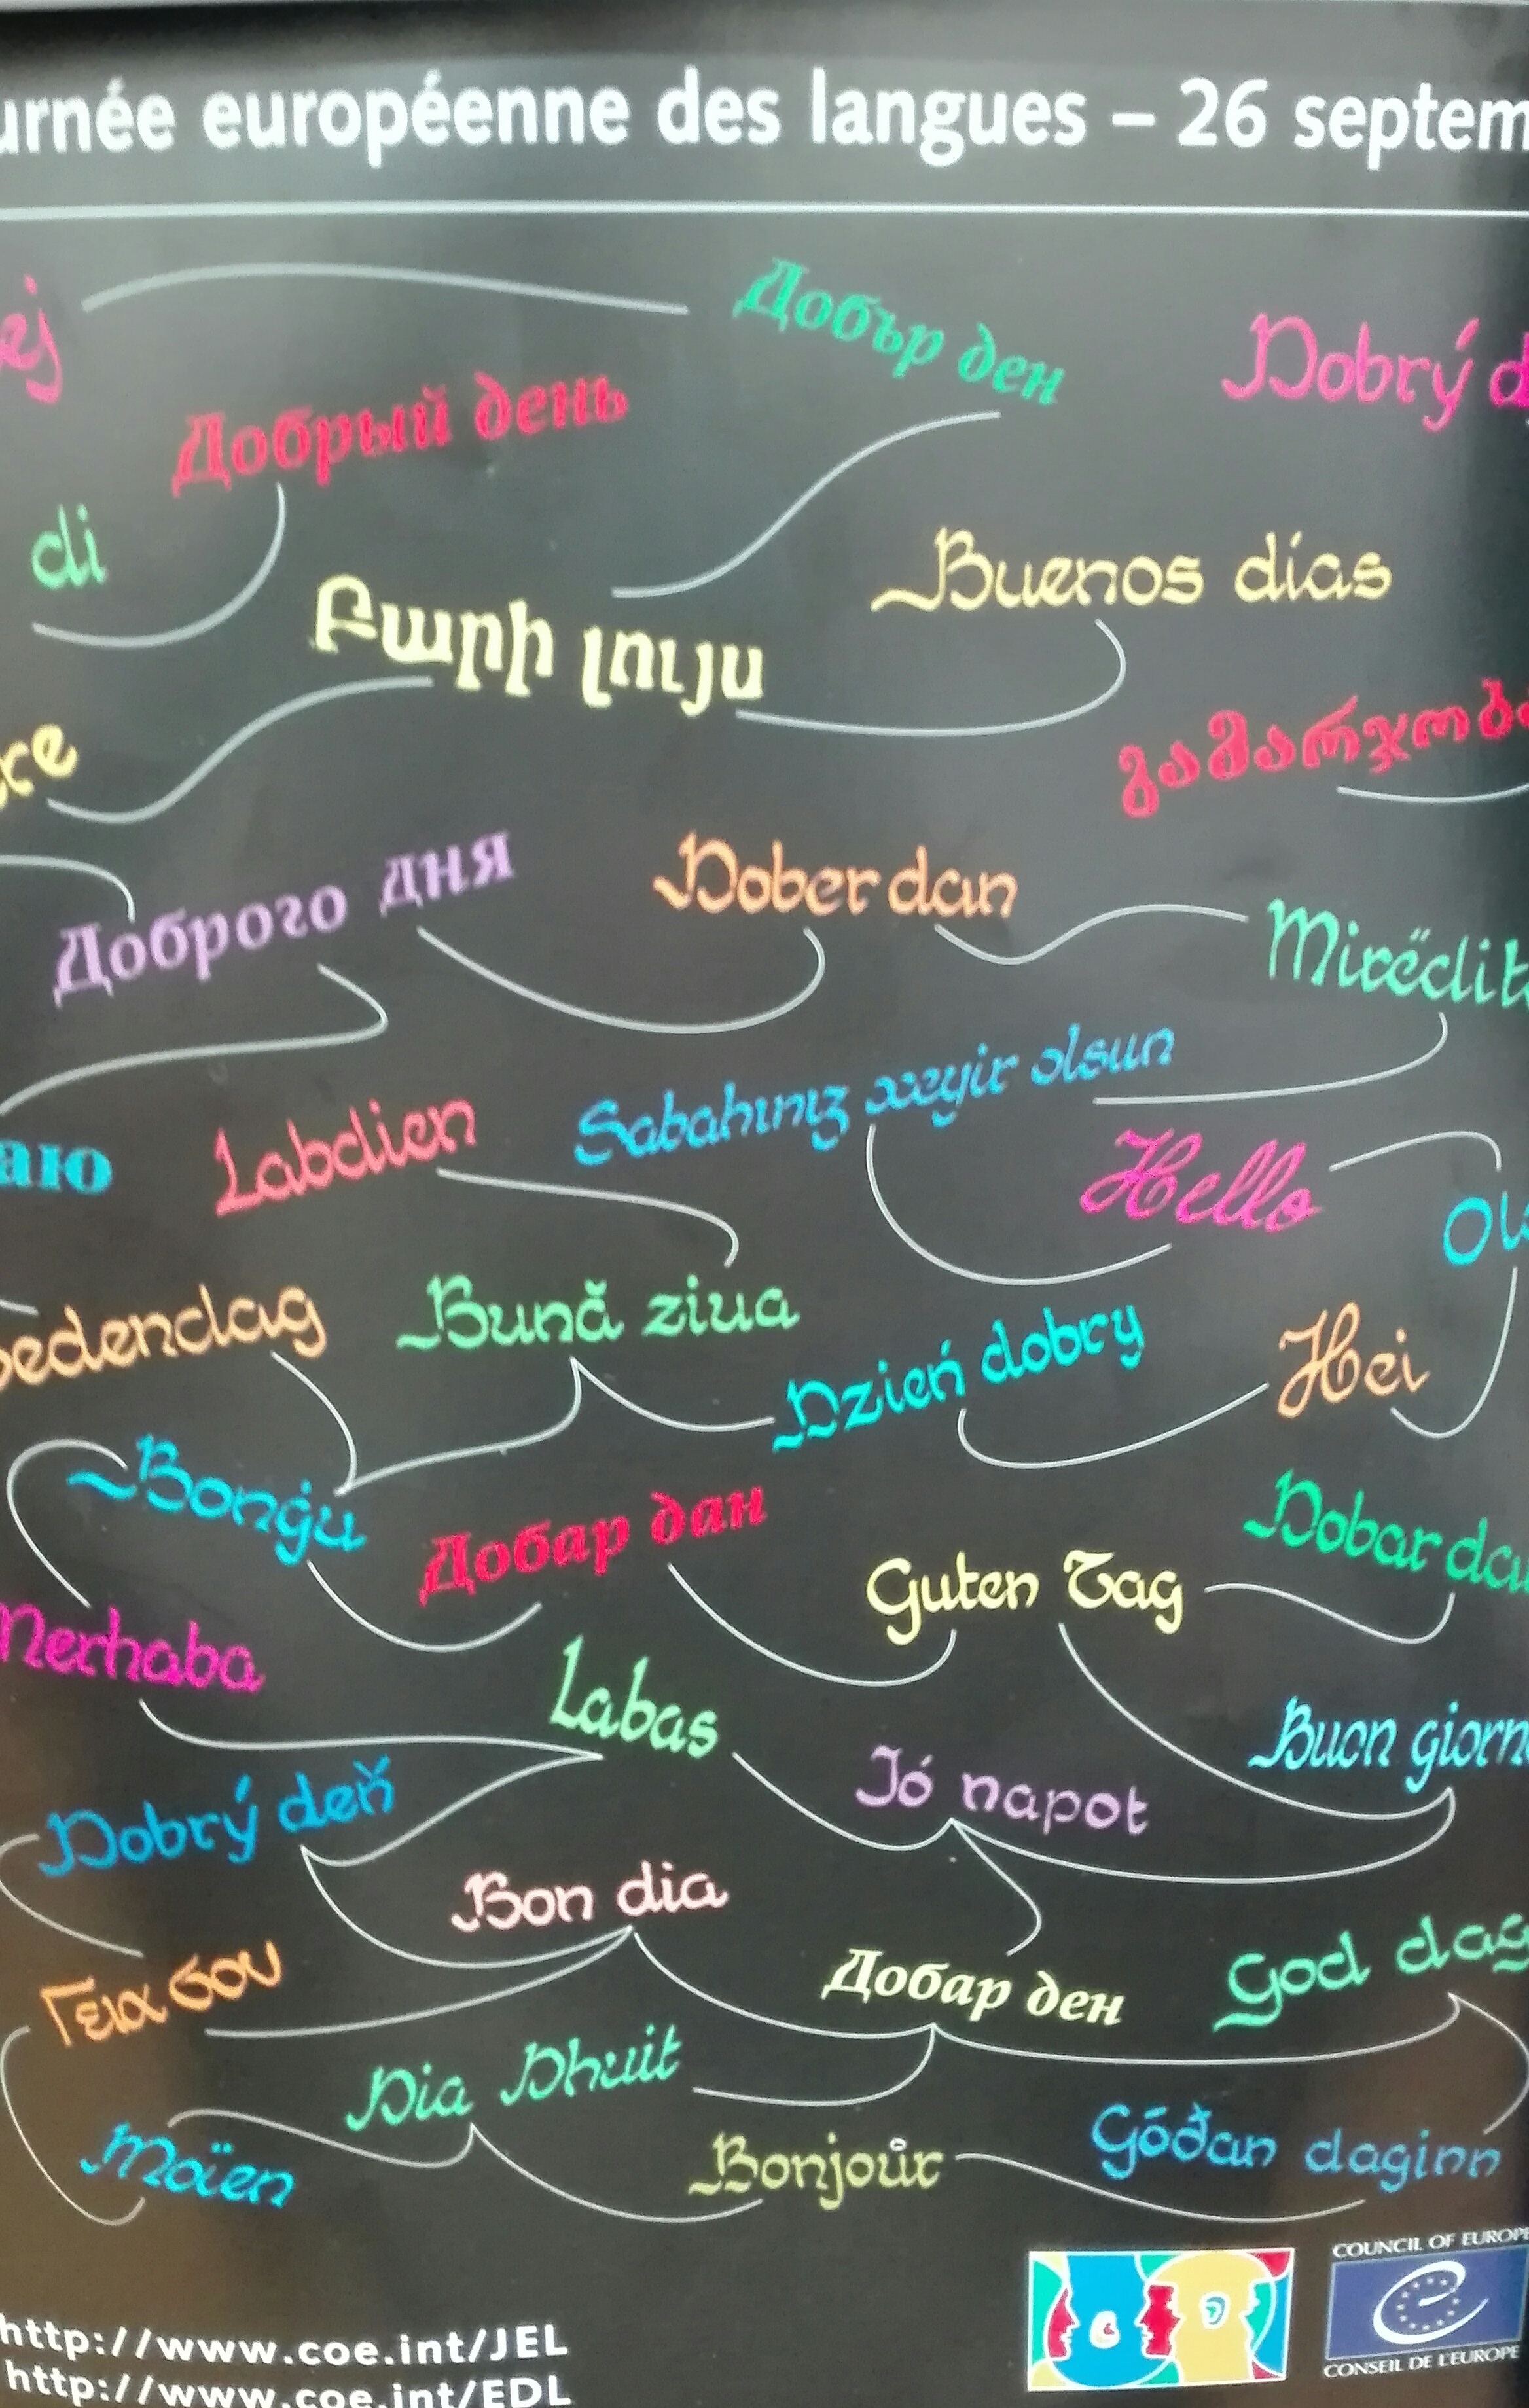 urnée européenne des langues – 26 septem
ej
Добър ден
Dobrý d
Добрый день
di
Buenos días
Բարի լույս
გამარჯობა
re
Доброго дня
Dober dan
Mirëdit
Sabahınız xeyir olsun
Labdien
аю
Hello
Ol
edendag
Bună ziua
Dzień dobry
Hei
Bonġu
Добар дан
Dobar da
Guten Tag
Merhaba
Labas
Buon giorn
Jó napot
Dobrý deň
Bon dia
God dag
Γεια σου
Добар ден
Dia Dhuit
Moïen
Bonjoûr
Góðan daginn
COUNCIL OF EUROPE
CONSEIL DE L'EUROPE
http://www.coe.int/JEL
http://www.coe.int/EDL